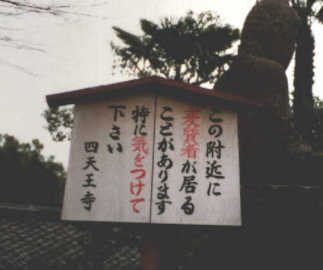 この附近に
変質者が居る
ことがあります
特に気をつけて
下さい
四天王寺